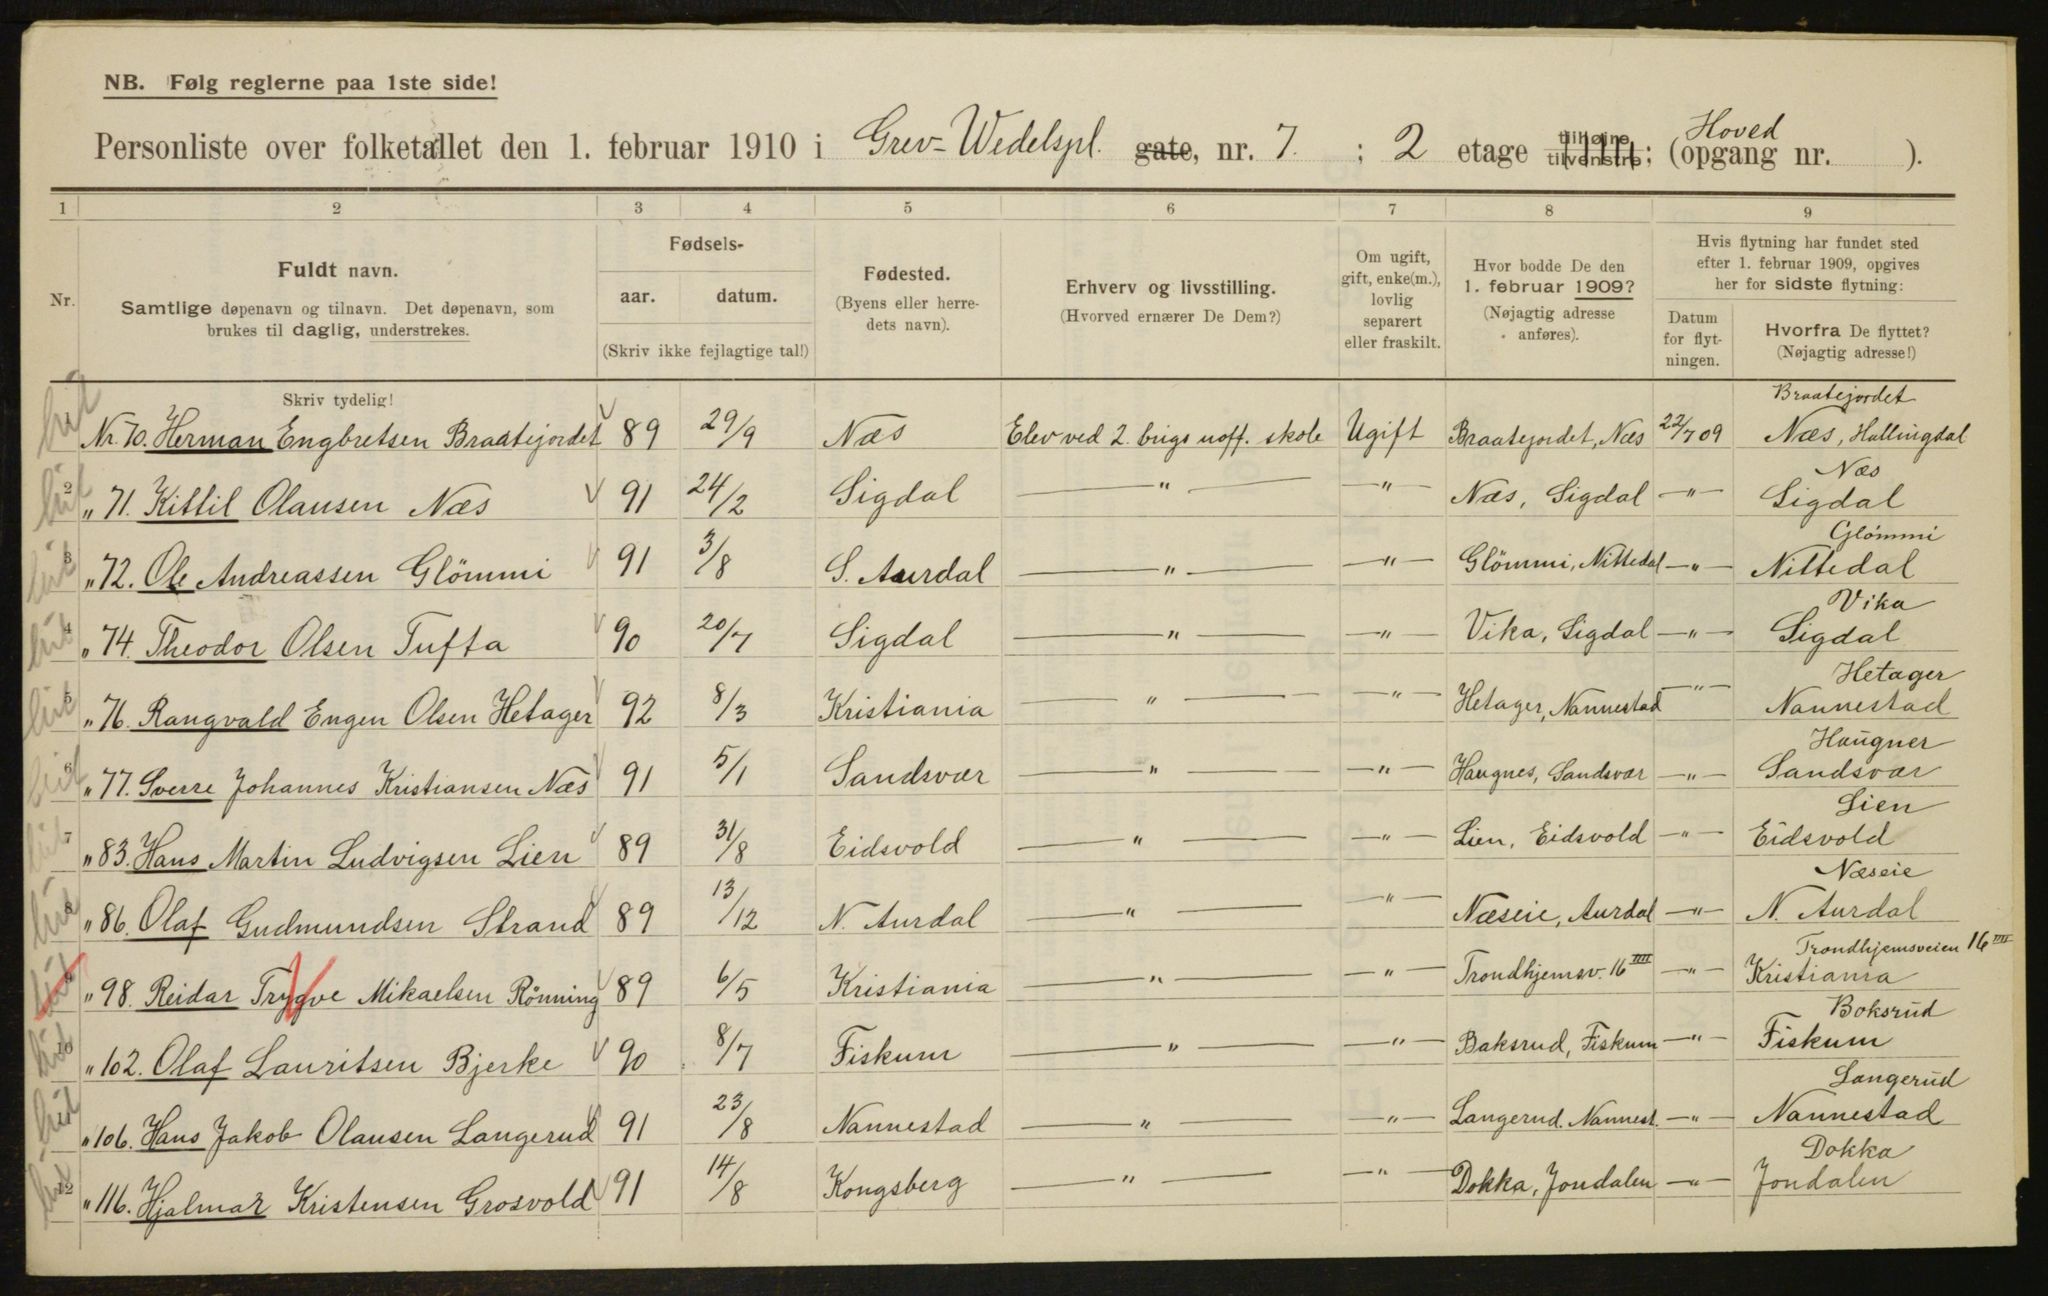 NB. Følg reglerne paa 1ste side!
Personliste over folketallet den 1. februar 1910 i Grev-Wedelspl. gate, nr. 7. ; 2 etage tilhøire tilvenstre; (Hoved opgang nr. ).
1 2 3 4 5 6 7 8 9
Nr.
Fuldt navn.
Samtlige døpenavn og tilnavn. Det døpenavn, som
brukes til daglig, understrekes.
Skriv tydelig!
Fødsels-
aar. datum.
(Skriv ikke fejlagtige tal!)
Fødested.
(Byens eller herre-
dets navn).
Erhverv og livsstilling.
(Hvorved ernærer De Dem?)
Om ugift,
gift, enke(m.),
lovlig
separert
eller fraskilt.
Hvor bodde De den
1. februar 1909?
(Nøjagtig adresse
anføres).
Hvis flytning har fundet sted
efter 1. februar 1909, opgives
her for sidste flytning:
Datum
for flyt-
ningen.
Hvorfra De flyttet?
(Nøjagtig adresse!)
Nr. 70. Herman Engbretsen Braatejordet 89 29/9 Næs Elev ved 2. brigs uoff. skole Ugift Braatejordet, Næs 22/7 09 Braatejordet Næs, Hallingdal
2 " 71. Kittil Olausen Næs 91 24/2 Sigdal — " — — " — Næs, Sigdal — " — Næs Sigdal
3 " 72. Ole Andreassen Glömmi 91 3/8 S. Aurdal — " — — " — Glömmi, Nittedal — " — Glömmi Nittedal
4 " 74. Theodor Olsen Tufta 90 20/7 Sigdal — " — — " — Vika, Sigdal — " — Vika Sigdal
5 " 76. Rangvald Engen Olsen Hetager 92 8/3 Kristiania — " — — " — Hetager, Nannestad — " — Hetager Nannestad
6 " 77. Sverre Johannes Kristiansen Næs 91 5/1 Sandsvær — " — — " — Haugnes, Sandsvær — " — Haugner Sandsvær
7 " 83. Hans Martin Ludvigsen Lien 89 31/8 Eidsvold — " — — " — Lien, Eidsvold — " — Lien Eidsvold
8 " 86. Olaf Gudmundsen Strand 89 13/12 N. Aurdal — " — — " — Næseie, Aurdal — " — Næseie N. Aurdal
9 " 98. Reidar Trygve Mikaelsen Rönning 89 6/5 Kristiania — " — — " — Trondhjemsv. 16 IIII — " — Trondhjemsveien 16 IIII Kristiania
10 " 102. Olaf Lauritsen Bjerke 90 8/7 Fiskum — " — — " — Baksrud, Fiskum — " — Boksrud Fiskum
11 " 106. Hans Jakob Olausen Langerud 91 23/8 Nannestad — " — — " — Langerud. Nannest. — " — Langerud Nannestad
12 " 116. Hjalmar Kristensen Grosvold 91 14/8 Kongsberg — " — — " — Dokka, Jondalen — " — Dokka Jondalen